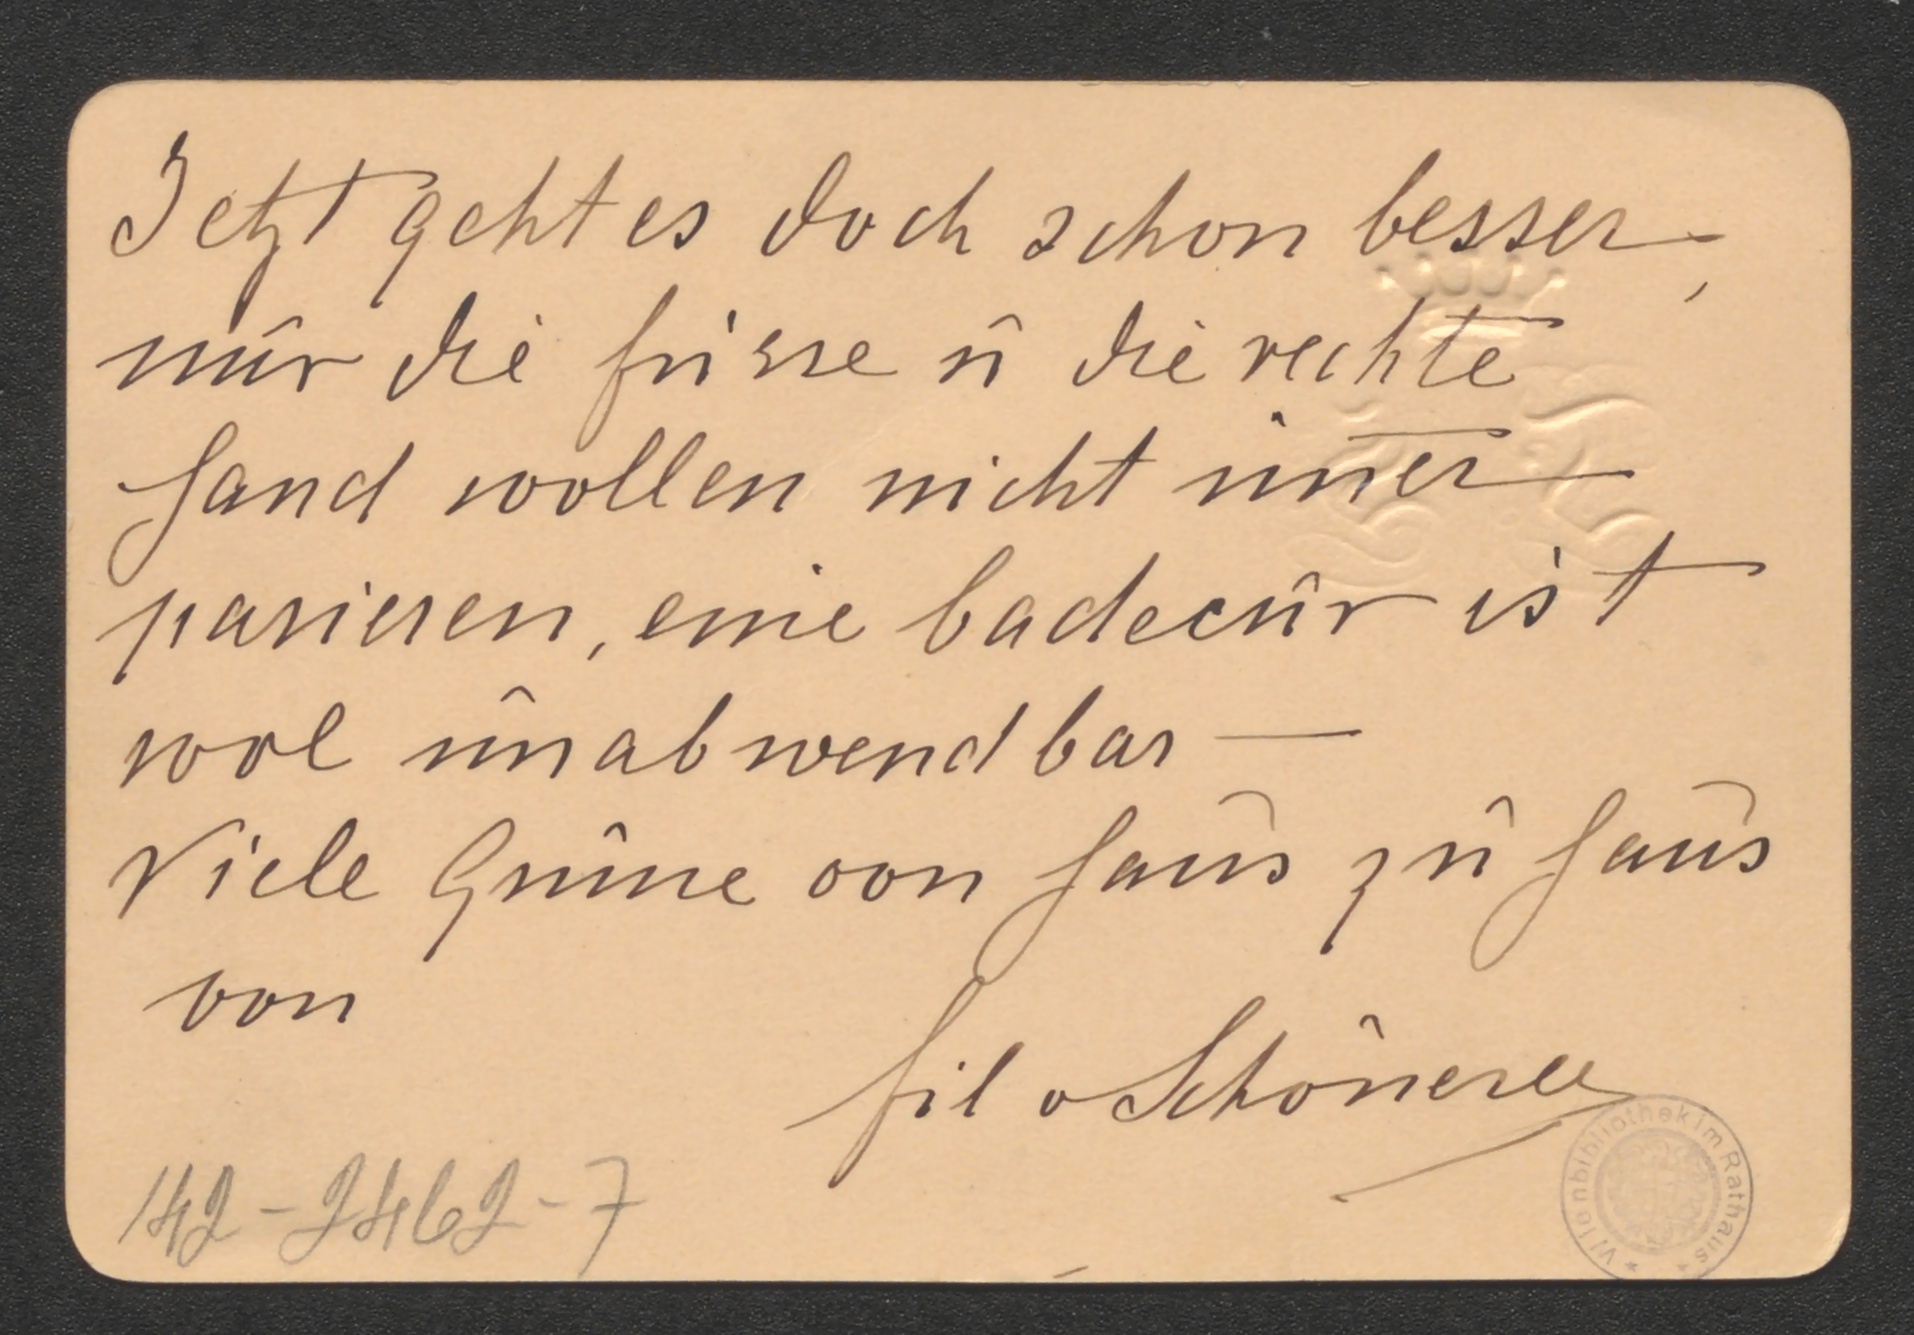 Jetzt geht es doch schon besser,
nur die Füsse u die rechte
Hand wollen nicht im̄er
parieren, eine Badecur ist
wol unabwendbar —
Viele Grüsse von Haus zu Haus
von
Fil v Schönerer
142-2462-7
Wienbibliothek im Rathaus